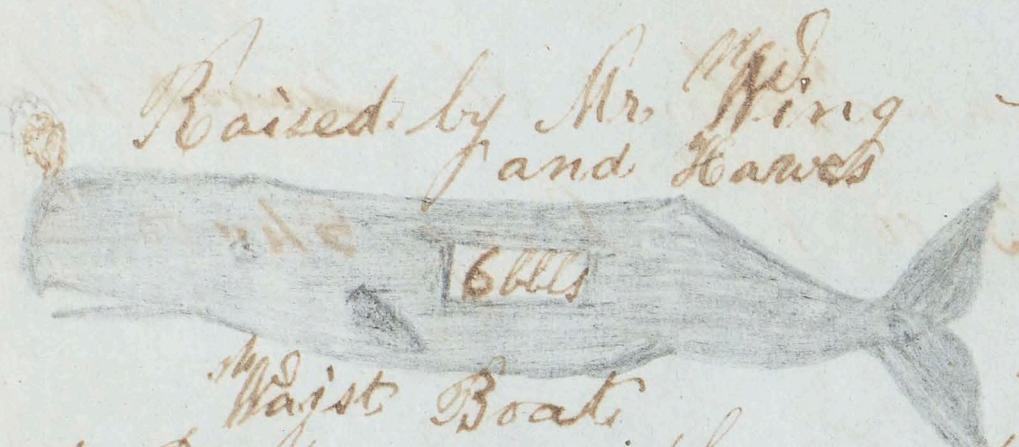 Raised by Mr. Wing
and Hawes
6 bbls
Waist Boat